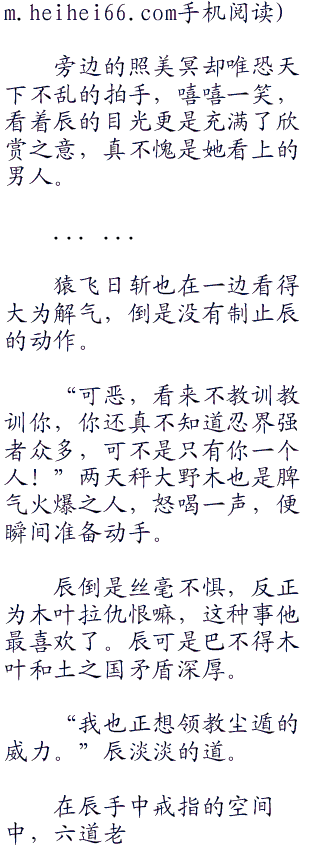 m.heihei66.com手机阅读)
旁边的照美冥却唯恐天
下不乱的拍手，嘻嘻一笑，
看着辰的目光更是充满了欣
赏之意，真不愧是她看上的
男人。
... ...
猿飞日斩也在一边看得
大为解气，倒是没有制止辰
的动作。
“可恶，看来不教训教
训你，你还真不知道忍界强
者众多，可不是只有你一个
人！”两天秤大野木也是脾
气火爆之人，怒喝一声，便
瞬间准备动手。
辰倒是丝毫不惧，反正
为木叶拉仇恨嘛，这种事他
最喜欢了。辰可是巴不得木
叶和土之国矛盾深厚。
“我也正想领教尘遁的
威力。”辰淡淡的道。
在辰手中戒指的空间
中，六道老